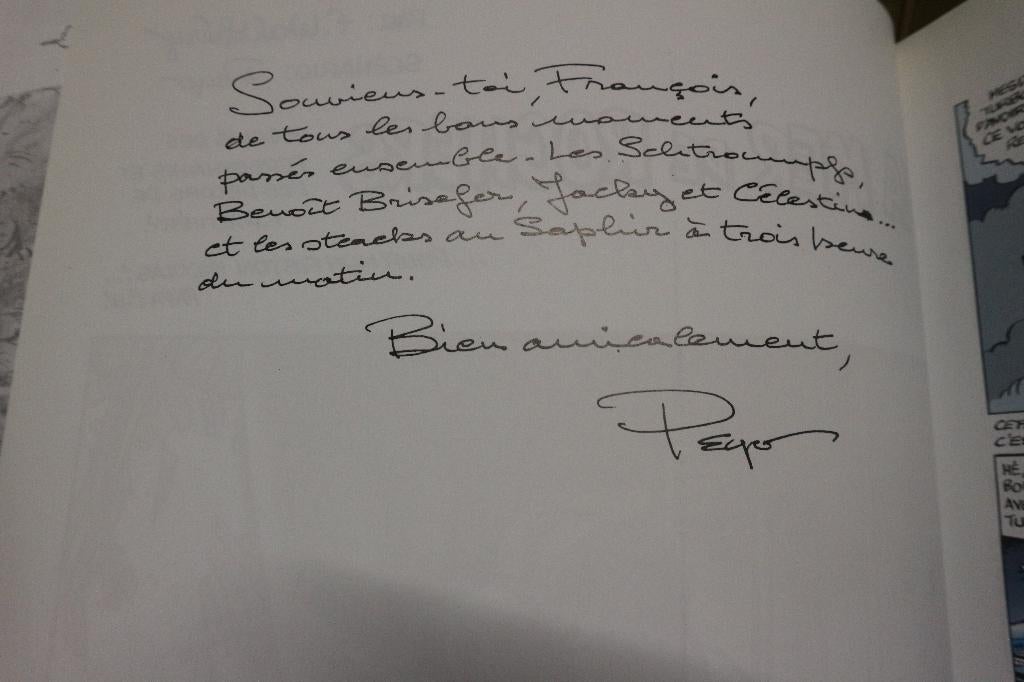 Souviens-toi, François,
de tous les bons moments
passés ensemble. Les Schtroumpfs,
Benoît Brisefer, Jacky et Célestin...
et les steacks au Saphir à trois heure
du matin.
Bien amicalement,
Peyo
HÉ,